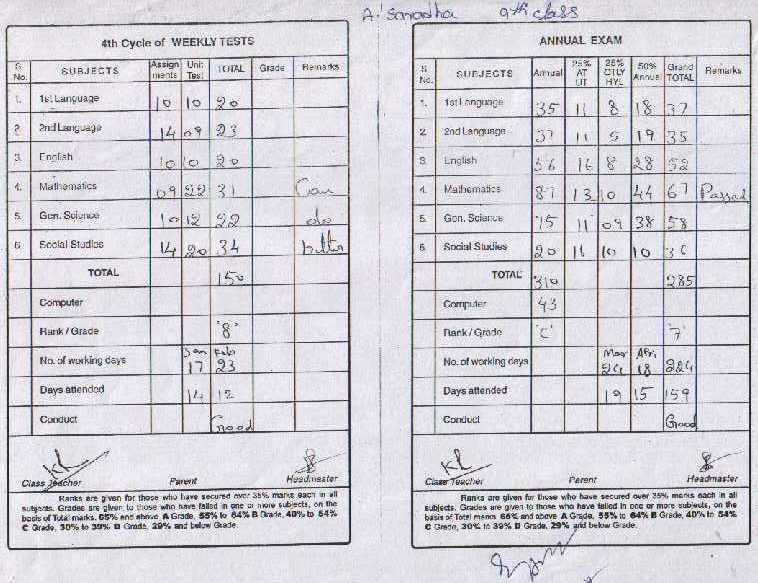 A. Sanadha 9th class
4th Cycle of WEEKLY TESTS
S. No. SUBJECTS Assignments Unit Test TOTAL Grade Remarks
1. 1st Language 10 10 20
2. 2nd Language 14 09 23
3. English 10 10 20
4. Mathematics 09 22 31 Can
5. Gen. Science 10 12 22 do
6 Social Studies 14 20 34 better
TOTAL 150
Computer
Rank / Grade "8"
Jan Feb
No. of working days 17 23
Days attended 14 12
Conduct Good
Class Teacher Parent Headmaster
Ranks are given for those who have secured over 35% marks each in all
subjects. Grades are given to those who have failed in one or more subjects, on the
basis of Total marks. 65% and above A Grade, 55% to 64% B Grade, 40% to 54%
C Grade, 30% to 39% D Grade, 29% and below Grade.
ANNUAL EXAM
S No. SUBJECTS Annual 25% AT UT 25% QTLY HYL 50% Annual Grand TOTAL Remarks
1. 1st Language 35 11 8 18 37
2. 2nd Language 37 11 5 19 35
3. English 56 16 8 28 52
4. Mathematics 87 13 10 44 67 Passed
5. Gen. Science 75 11 09 38 58
6. Social Studies 20 16 10 10 36
TOTAL 310 285
Computer 43
Rank / Grade 'C' '7'
Mar Apri
No. of working days 24 18 224
Days attended 19 15 159
Conduct Good
Class Teacher Parent Headmaster
Ranks are given for those who have secured over 35% marks each in all
subjects. Grades are given to those who have failed in one or more subjects, on the
basis of Total marks 65% and above A Grade, 55% to 64% B Grade, 40% to 54%
C Grade, 30% to 39% D Grade, 29% and below Grade.